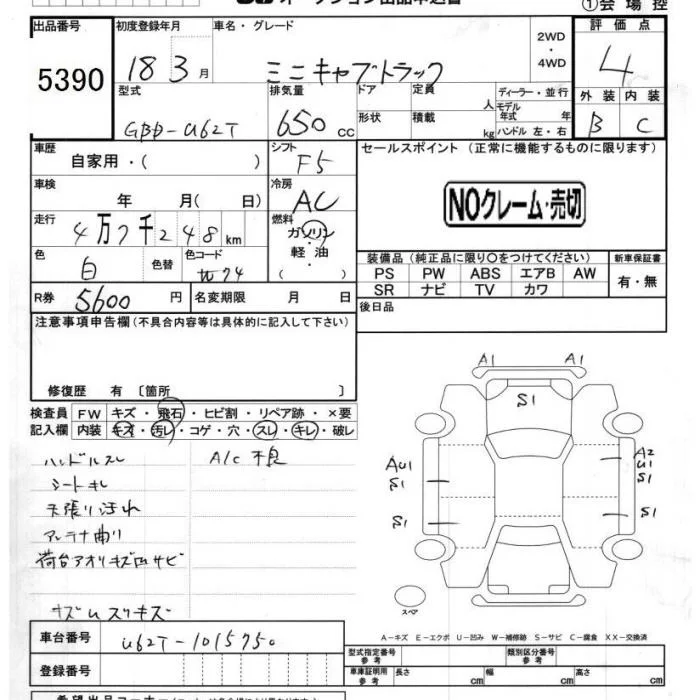 ①会場控
出品番号 初度登録年月 車名・グレード 2WD・4WD 評価点
5390 18 3月 ミニキャブトラック 4
型式 排気量 ドア 定員 人 ディーラー・並行 外装 内装
GBD-U62T 650cc 形状 積載 kg モデル年式 年 ハンドル 左・右 B C
車歴 自家用・( ) シフト F5 セールスポイント (正常に機能するものに限ります)
車検 年 月( 日) 冷房 AC NOクレーム・売切
走行 4万7千248km 燃料 ガソリン・軽油・( )
色 白 色替 色コード W74 装備品(純正品に限り○をつけてください) 新車保証書
PS PW ABS エアB AW 有・無
SR ナビ TV カワ
R券 5600円 名変期限 月 日 後日品
注意事項申告欄(不具合内容等は具体的に記入して下さい)
修復歴 有〔箇所 〕
検査員 FW キズ・飛石・ヒビ割・リペア跡・×要
記入欄 内装 キズ・汚レ・コゲ・穴・スレ・キレ・破レ
ハンドルスレ A/C 不良
シートキレ
天張り汚れ
アンテナ曲り
荷台アオリキズ凹サビ
キズ凹スリキズ
A1 A1
S1
AU1 A2
S1 U1
S1
S1 S1
スペア
A-キズ E-エクボ U-凹み W-補修跡 S-サビ C-腐食 XX-交換済
車台番号 U62T-1015750 型式指定番号 参考 類別区分番号 参考
登録番号 車庫証明用 参考 長さ cm 幅 cm 高さ cm